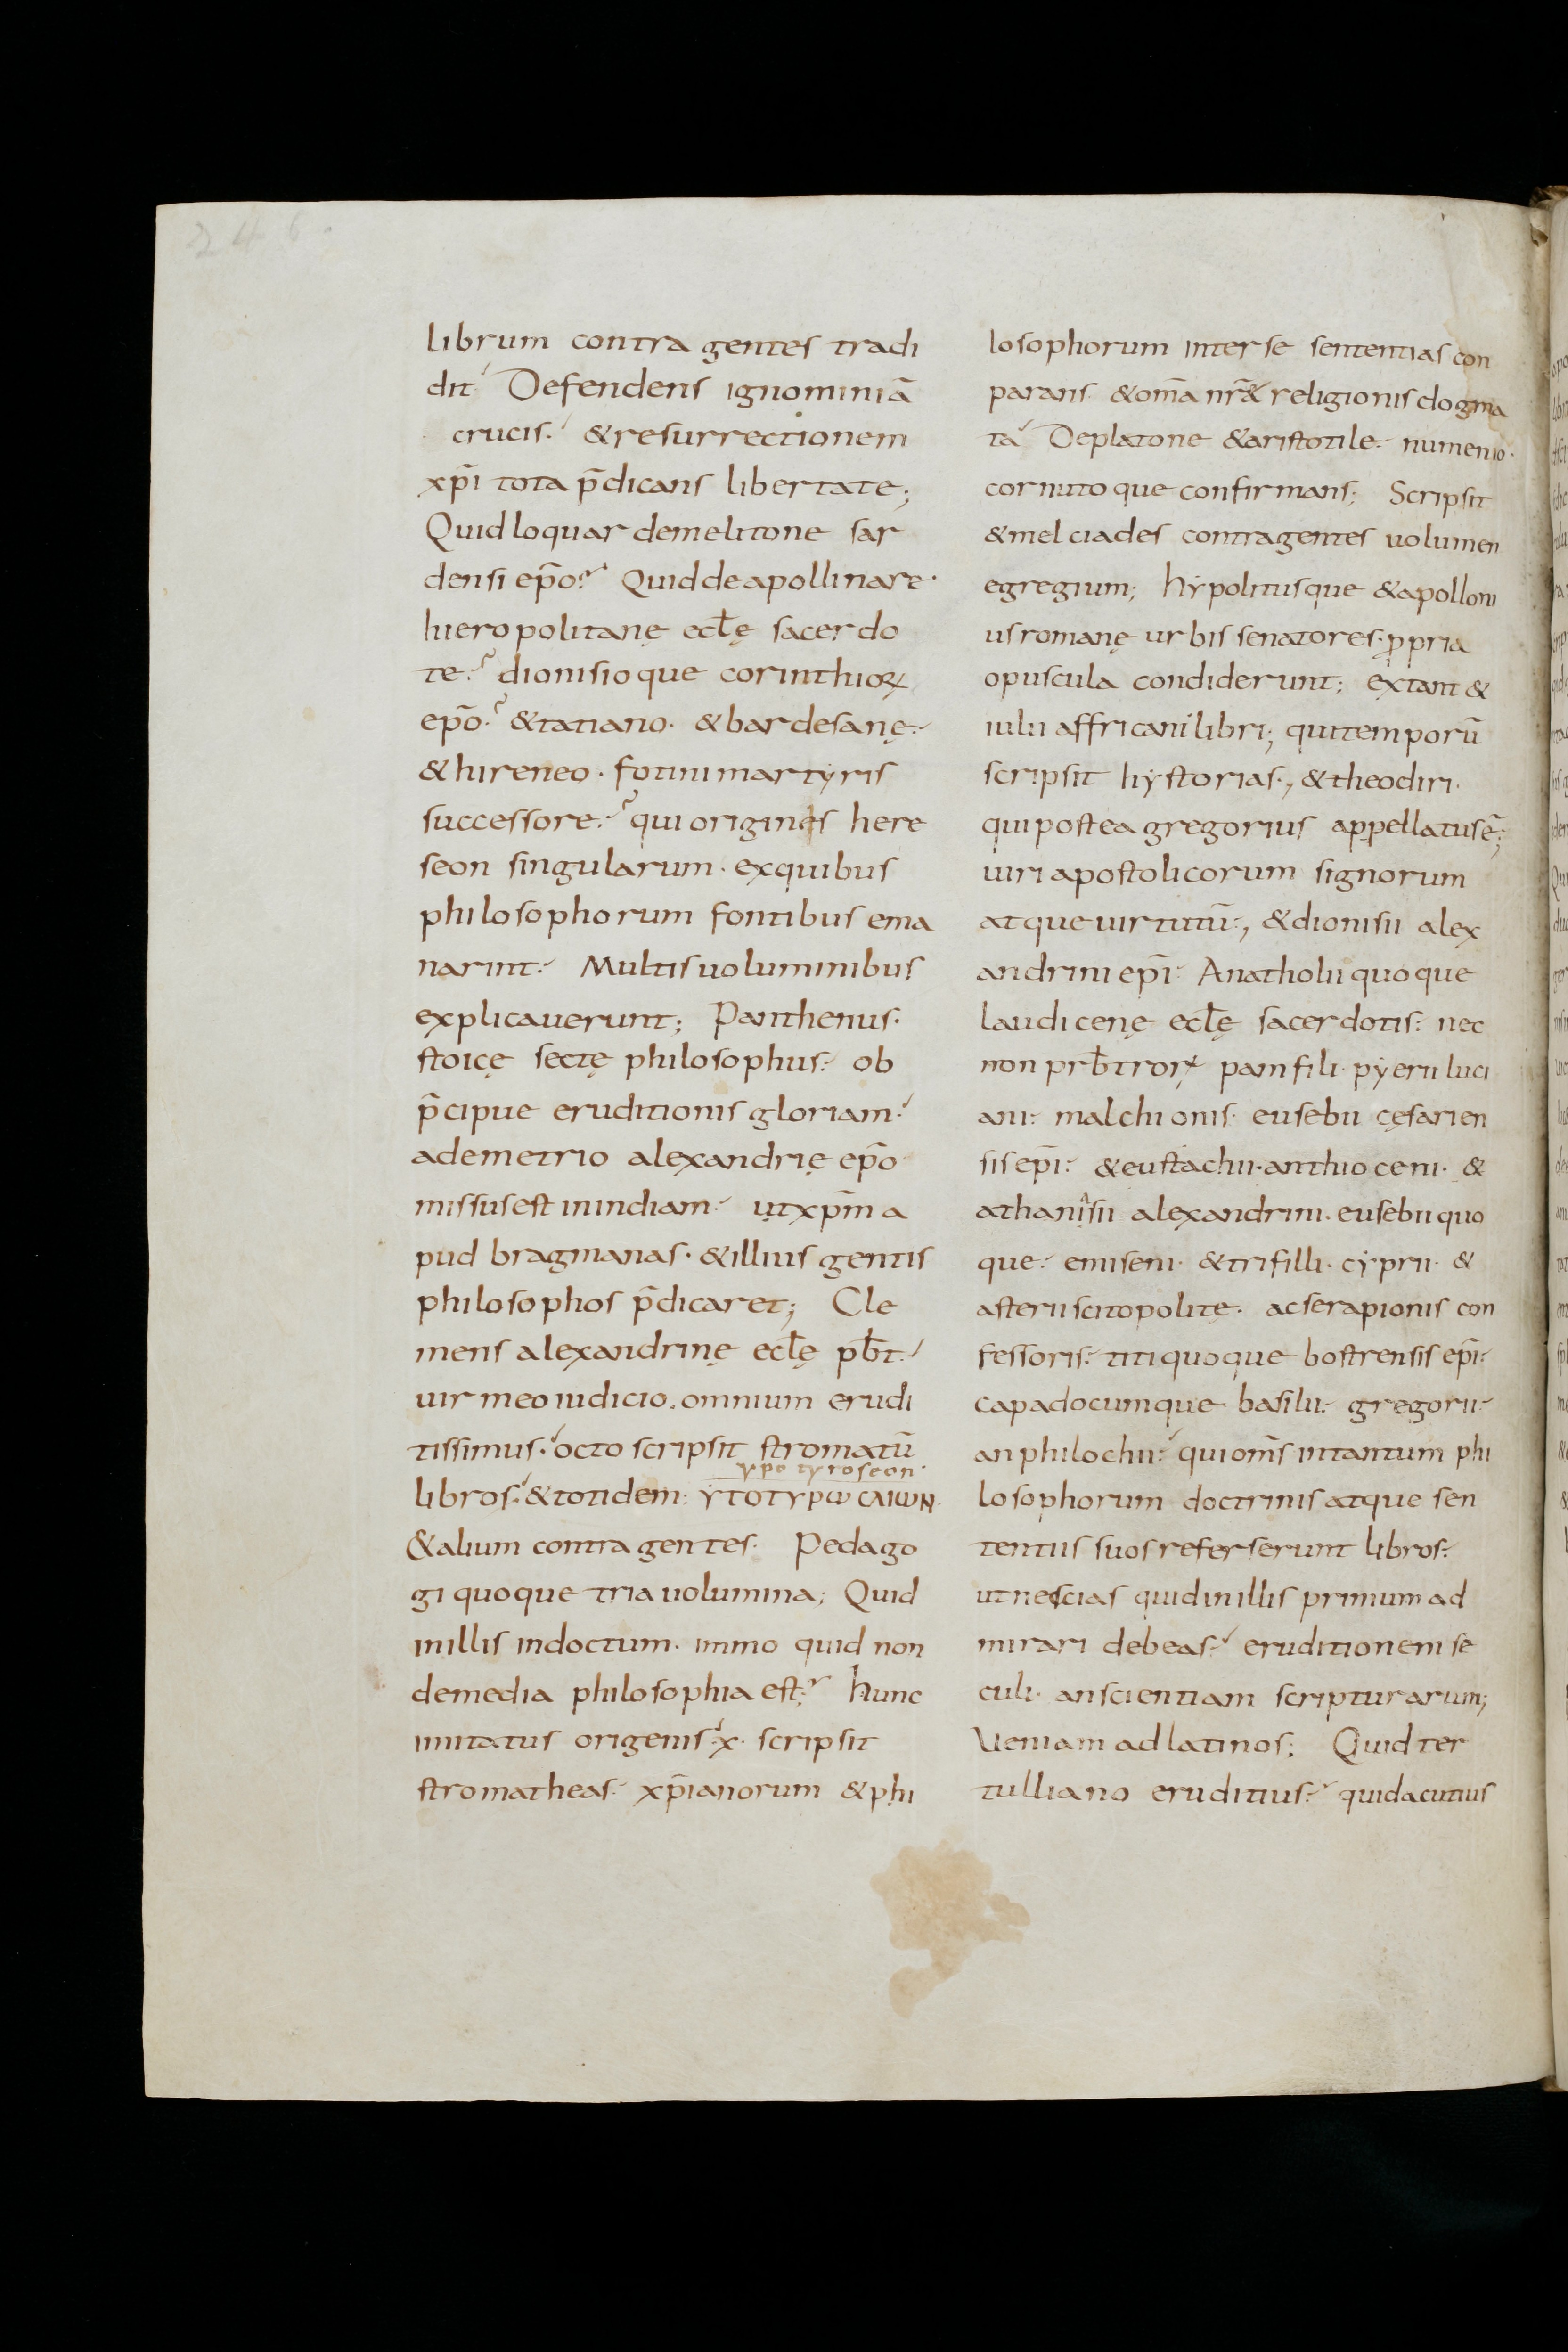 246.
librum contra gentes tradi
dit Defendens ignominiā
crucis. & resurrectionem
xp̄i tota p̄dicans libertate;
Quid loquar demelitone sar
densi ep̄o? Quid de apollinare.
hieropolitanę eclę̄ sacerdo
te? dionisio que corinthioꝝ
ep̄o? & tatiano. & bardesanę.
& hireneo. fotini martyris
successore? qui origines here
seon singularum. ex quibus
philosophorum fontibus ema
narint. Multis uoluminibus
explicauerunt; Panthenus.
stoicę sectę philosophus. ob
p̄cipue eruditionis gloriam.
a demetrio alexandrię ep̄o
missus est in indiam. ut xp̄m a
pud bragmanas. & illius gentis
philosophos p̄dicaret; Cle
mens alexandrinę eclę̄ pb̄t.
uir meo iudicio. omnium erudi
tissimus. octo scripsit stromatū
ypotyroseon.
libros. & totidem: ΥΤΟΤΥΡω CΛΙωΝ.
& alium contra gentes. Pedago
gi quoque tria uolumina; Quid
in illis indoctum. immo quid non
de media philosophia est? hunc
imitatus origenis. x. scripsit
stromatheas. xp̄ianorum & phi
losophorum inter se sententias con
parans. & om̄a nr̄æ religionis dogma
ta De platone & aristotile. numenio.
cornuto que confirmans; Scripsit
& melciades contra gentes uolumen
egregium; hẏpolitus que & apolloni
us romanę urbis senatores. ꝓpria
opuscula condiderunt; extant &
iulii affricani libri; qui temporū
scripsit hẏstorias., & theodiri.
qui postea gregorius appellatus ē;
uiri apostolicorum signorum
atque uirtutū., & dionisii alex
andrini ep̄i. Anatholii quoque
laudicenę eclę̄ sacerdotis. nec
non prb̄troꝝ pamfili. pẏerii luci
ani. malchionis. eusebii cęsarien
sis ep̄i. & eustachii. anthioceni. &
athanisii alexandrini. eusebii quo
que. emiseni. & trifilli. cẏprii. &
asterii scitopolitę. ac serapionis con
fessoris. titi quoque bostrensis ep̄i.
capadocumque. basilii. gregorii.
anphilochii. qui om̄s in tantum phi
losophorum doctrinis atque sen
tentiis suos referserunt libros.
ut nescias quid in illis primum ad
mirari debeas. eruditionem se
culi. an scientiam scripturarum;
Veniam ad latinos; Quid ter
tulliano eruditius? quid acutius